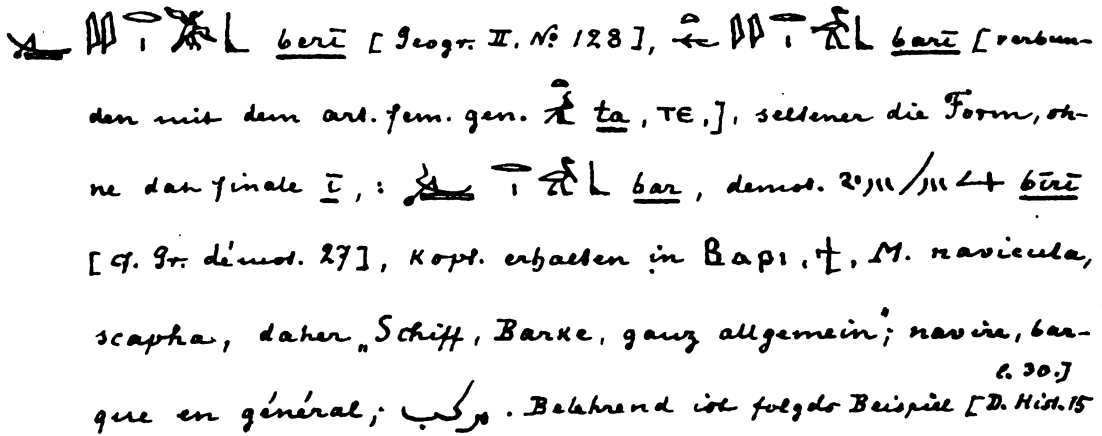 berī [Geogr. II. No 128], barī [verbun-
den mit dem art. fem. gen. ta, ΤΕ,], seltener die Form, oh-
ne das finale ī,: bar, demot. bīrī
[cf. Gr. démot. 27], kopt. erhalten in ⲃⲁⲣⲓ, ϯ, M. navicula,
scapha, daher „Schiff, Barke, ganz allgemein“; navire, bar-
que en général; مركب. Belehrend ist folgds Beispiel [D. Hist. 15
l. 30.]